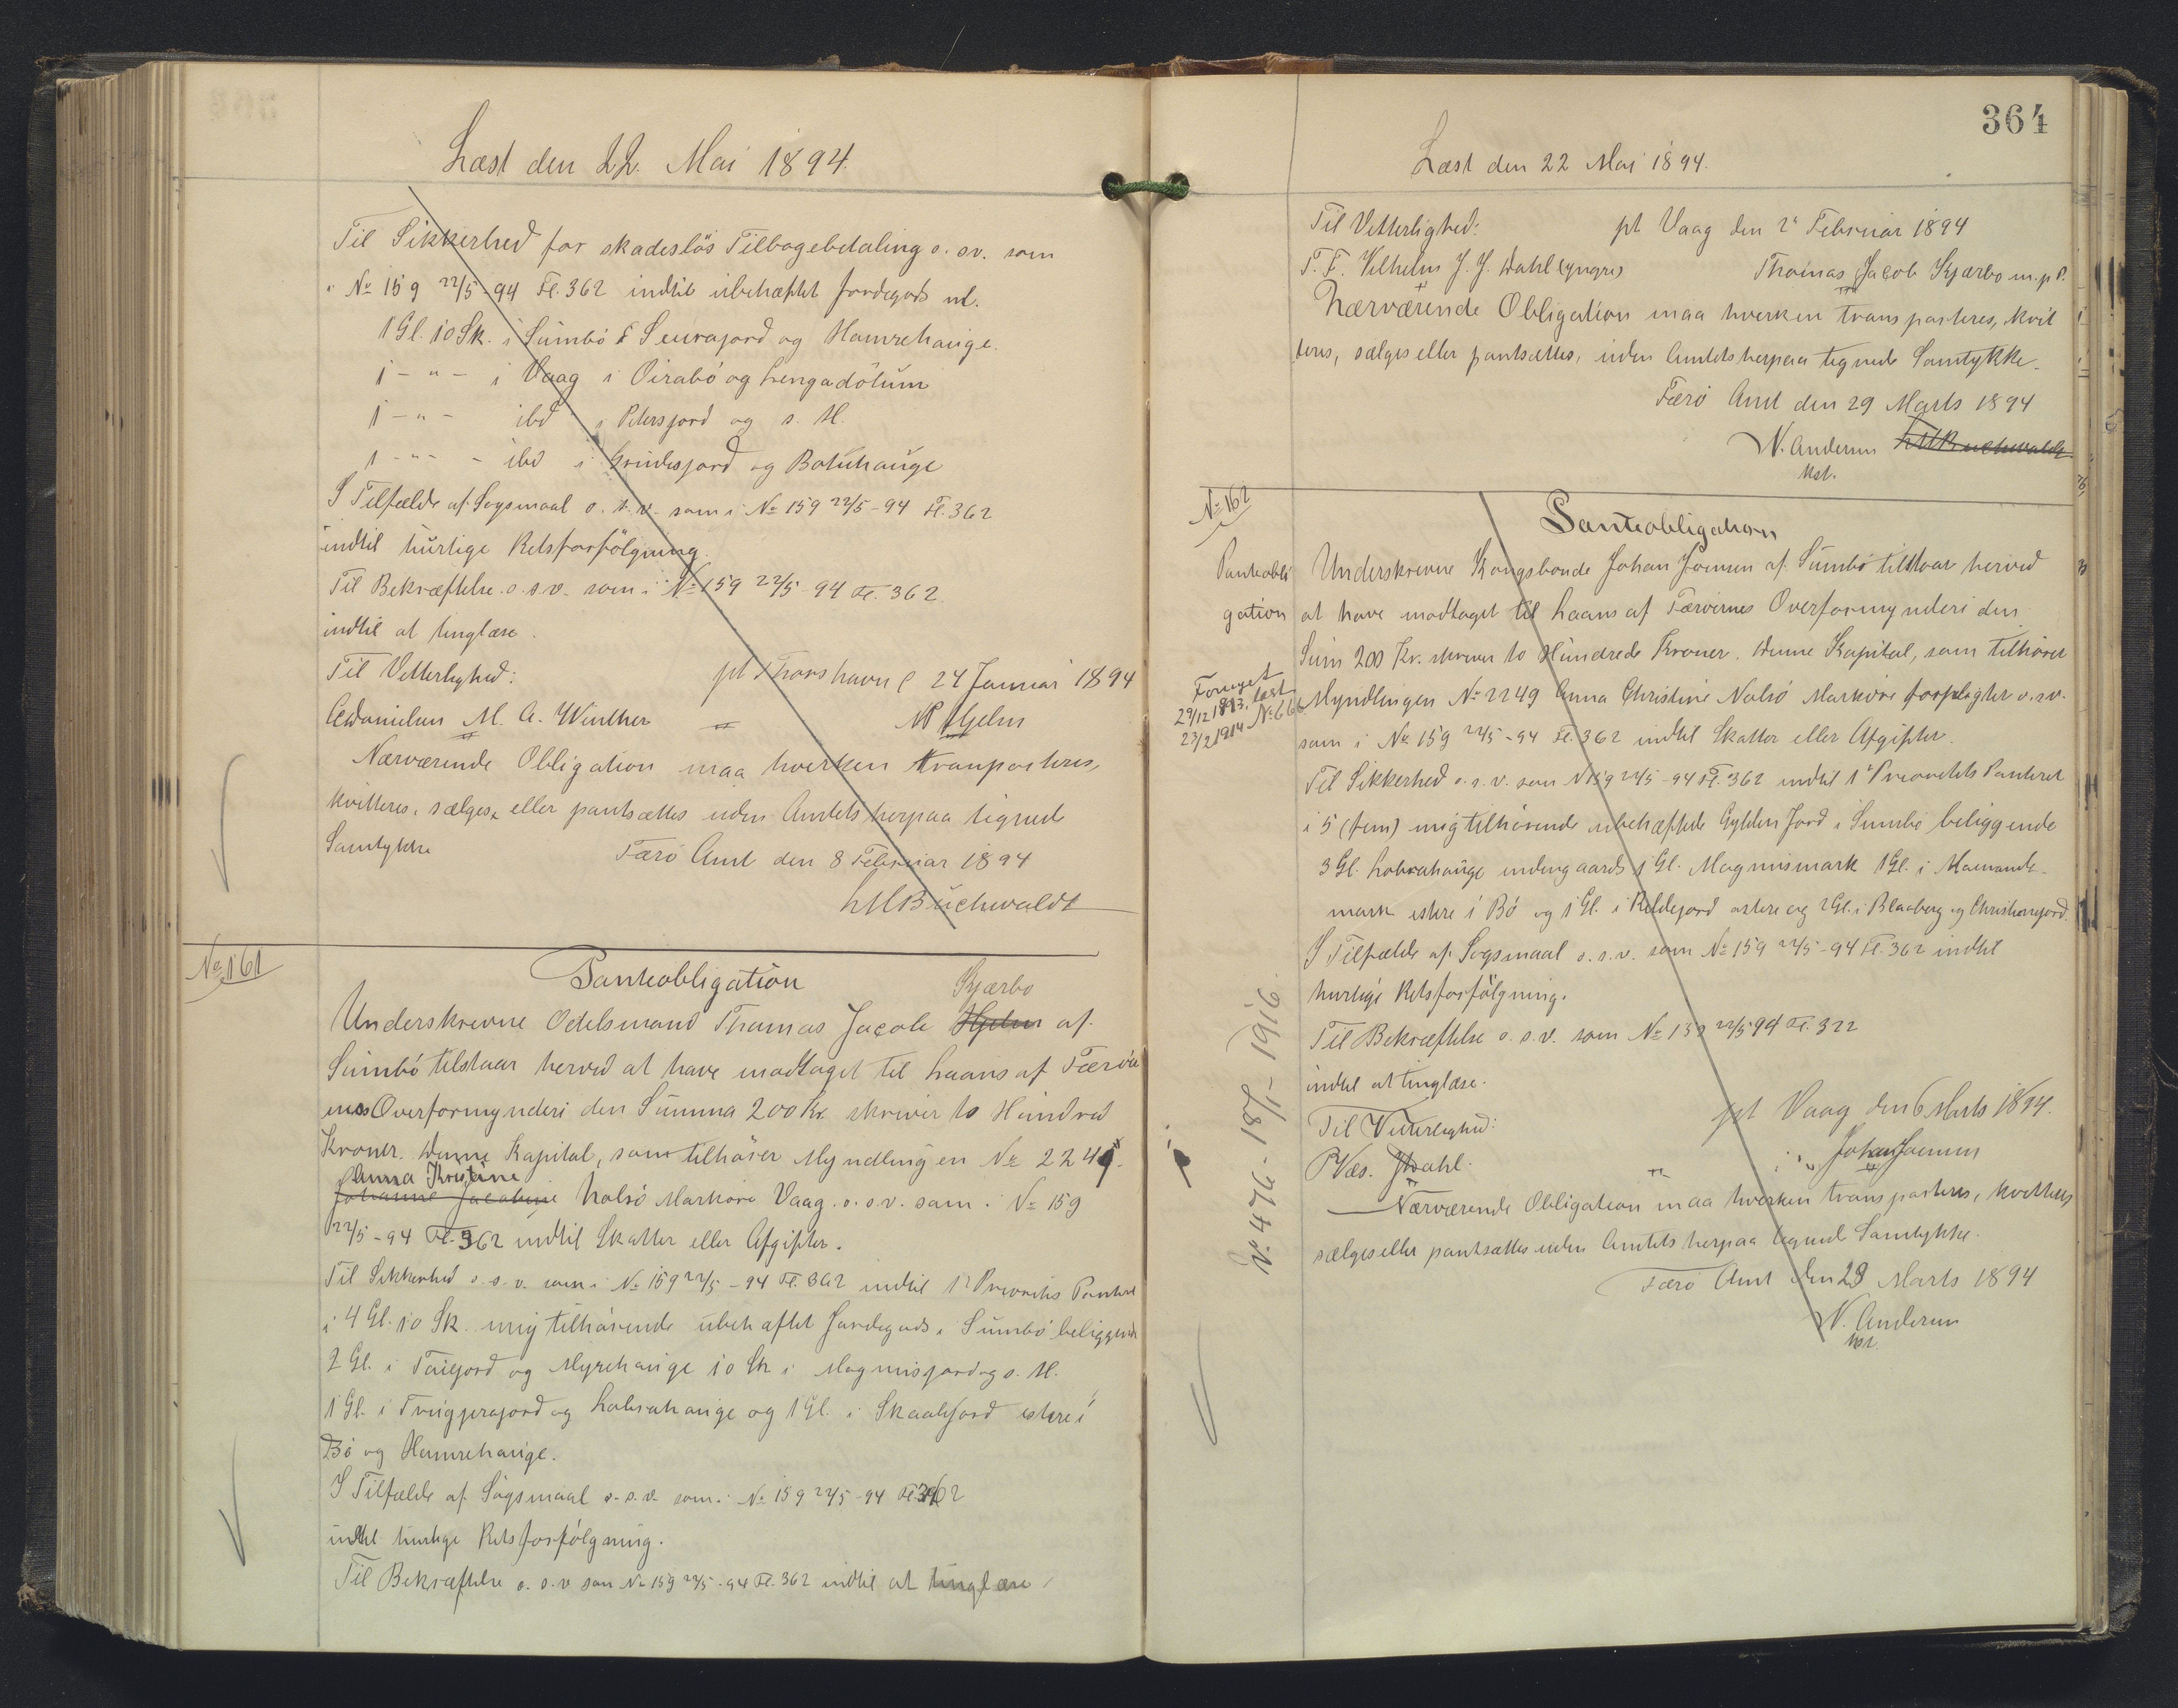 Læst den 22. Mai 1894.
Til Sikkerhed for skadesløs Tilbagebetaling o. sv. som
i No 159 22/5-94 Fl. 362 indtil ubehæftet Jordegods nl.
1 Gl. 10 Sk. i Sumbö i Seurajord og Hamrehauge.
1 - " - i Vaag i Oirabö og Lengadölum
1 - " - ibd i Petersjord og s. H.
1 - " - - ibd i Grindesjord og Botnhauge
I Tilfælde af Søgsmaal o. s. v. som i No 159 22/5-94 Fl. 362
indtil hurtige Retsforfölgning.
Til Bekræftelse o. s. v. som i No 159 22/5 94 Fl. 362.
indtil at tinglæse.
Til Vetterlighed: pt Thorshavn d 24 Januar 1894
A Danielsen M. A. Winther MP Hjelm
Nærværende Obligation maa hverken tranporteres,
kvitteres, sælges, eller pantsættes uden Amtets herpaa tegnede
Samtykke
Færö Amt den 8 Februar 1894
LHBuchwaldt
No 161
Panteobligation
Kjærbo
Underskrevne Odelsmand Thomas Jacob Hjelm af
Sumbö tilstaar herved at have modtaget til Laans af Færöer
nes Overformynderi den Summa 200 Kr. skriver to Hundred
Kroner. Denne Kapital, som tilhörer Myndlingen No 2249.
Anna Kristine
Johanne Jacobine Nolsö Marköre Vaag. o. s. v. som i No 159
22/5-94 Fl. 362 indtil Skatter eller Afgifter.
Til Sikkerhed o. s. v. som i No 159 22/5-94 Fl. 362 indtil 1ste Prioritets Panteret
i 4 Gl. 10 Sk. mig tilhörende ubehæftet Jordegods i Sumbö beliggende
2 Gl. i Tuejord og Myrehauge 10 Sk i Magnusjord og s. H.
1 Gl. i Trugjerajord og Labrahauge og 1 Gl. i Skaalejord estere i
Bö og Hamrehauge.
I Tilfælde af Sögsmaal o. s. v. som i No 159 22/5-94 Fl. 362
indtil hurtige Retsforfölgning.
Til Bekræftelse o. s. v som No 159 22/5-94 Fl. 362 indtil at tinglæse
364
Læst den 22 Mai 1894.
Til Vetterlighed: pt Vaag den 2 Februar 1894
T. F. Vilhelm J. J. Dahl (yngre) Thomas Jacob Kjærbo m. p. P.
Nærværende Obligation maa hverken transporteres, kvit
teres, sælges eller pantsættes, uden Amtets herpaa tegnede Samtykke.
Færö Amt den 29 Marts 1894
N. Andersen LHBuchwaldt
kst.
No 162
Panteobligation
Panteobli
gation
Underskrevne Kongsbonde Johan Joensen af Sumbö tilstaar herved
at have modtaget til Laans af Færöernes Overformynderi den
Sum 200 Kr. skriver to Hundrede Kroner. Denne Kapital, som tilhörer
Fornyet
29/12 1893, læst
23/2 1914 No 666
Myndlingen No 2249 Anna Christine Nolsö Marköre forpligter o. sv.
som i No 159 22/5-94 Fl. 362 indtil Skatter eller Afgifter.
Til Sikkerhed o. s. v. som No 159 22/5-94 Fl. 362 indtil 1ste Prioritets Panteret
i 5 (fem) mig tilhörende ubehæftede Gylden Jord i Sumbö beliggende
3 Gl. Labrahauge indengaards 1 Gl. Magnusmark 1 Gl. i
mark estere i Bö og 1 Gl. i Keldejord astere og 2 Gl. i Blaaberg og Christiansjord.
I Tilfælde af Søgsmaal o. s. v. som No 159 22/5-94 Fl. 362 indtil
hurtige Retsforfölgning.
Til Bekræftelse o. s. v. som No 159 22/5 94 Fl. 322
indtil at tinglæse.
pt Vaag den 6 Marts 1894.
Til Vitterlighed:
P Væs. JDahl. Johan Joensen
Nærværende Obligation maa hverken transporteres, kvitteres
sælges eller pantsættes uden Amtets herpaa tegnede Samtykke.
Færö Amt den 29 Marts 1894
N. Andersen
kst.